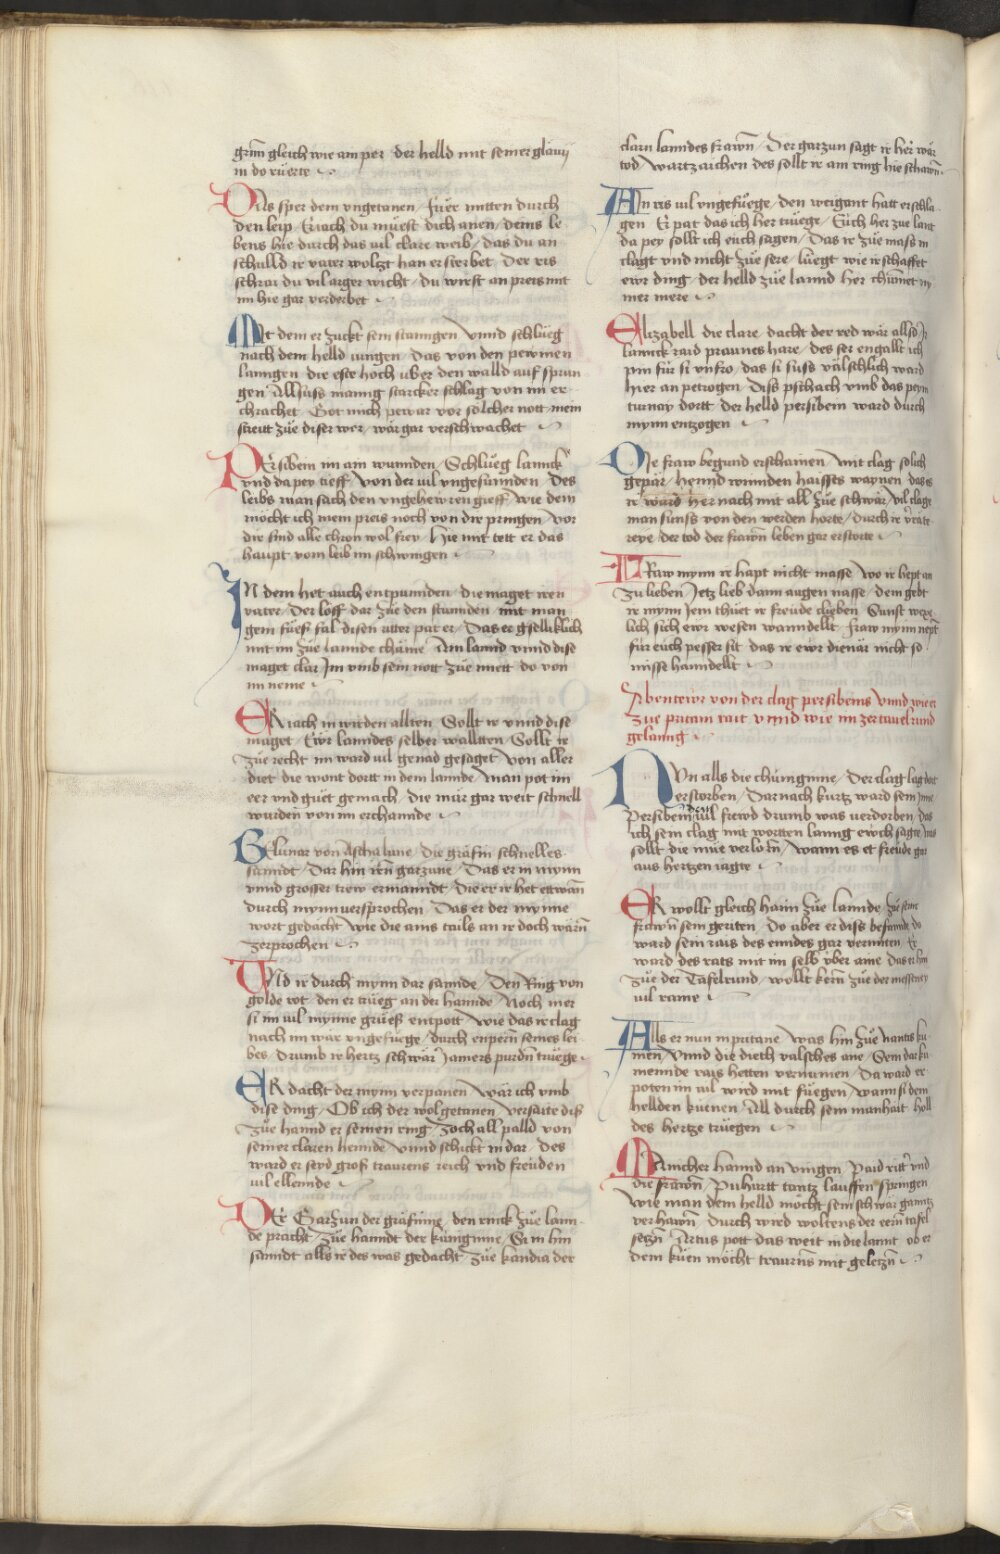 grim gleich wie ain per / der helld mit seiner glavij
in do ruerte
DAs sper dem ungetanen / fuer mitten durch
den leip / Er iach du muest dich anen / deins le
bens hie durch das vil clare weib / das du an
schulld ir vater wolzt han ersterbet Der ris
schrai du vil arger wicht / du wirst an preis mit
im hie gar verderbet
MIt dem er zuckt sein stanngen Vnnd schlueg
nach dem helld iungen / das von den pewmen
lanngen die este hoch uber den walld auf sprun
gen / Allsuss manig starcker schlag von im er
chrachet Got mich pewar vor solcher nott mein
streitt zue diser wer / war gar verschwachet
PErsibein im ain wunnden / Schlueg lannck
vnd da pey tieff / von der vil ungesunnden / Des
leibs man sach den ungehewren greff / wie dem
möcht ich mein preis noch von dir pringen / vor
dir sind alle chron wol frey / Hie mit tett er das
haupt vom leib im schwingen
IN dem het auch entpunnden / die maget iren
vater / Der löff dar zue den stunnden mit man
gem fuess fal disen utter pat er / Das er gselliklich
mit im zue lannde chäme Am lannd vnnd dise
maget clar Im vmb sein nott zue miett do von
im neme
ER iach in wirden allten Sollt ir vnnd dise
maget / Ewr lanndes selber walltten / Sollt ir
zue recht im ward vil genad gesaget von aller
diet die wont dortt in dem lannde / man pot im
eer vnd guet gemach / die mär gar weit schnell
wurden von im erchannde
GElunar von Aschalune / die gräfin schnelles
sanndt / Dar hin irn garzune / Das er in mynn
vnnd grosser trew ermanndt / die er ir het ettwan
durch mynn versprochen Das er der mynne
wort gedacht wie die ains tails an ir doch wärn
zerprochen
VNd ir durch mynn dar sannde / Den Ring von
golde rot den er trueg an der hannde / Noch mer
si im vil mynne gruess entpott / wie das ir clag
nach im wär ungefuege / durch enpern seines lei
bes / drumb ir hertz schwär Jamers purdn truege
ER dacht der mynn verpanen wär ich vmb
dise ding / Ob ich der wolgetanen versaite diss
zue hannd er seinen ring / zoch all palld von
seiner claren hennde / vnnd schickt in dar / des
ward er seyd gross traurens reich vnd freuden
vil ellennde
DEr Garzun der gräfinne / den rinck zue lann
de pracht / zue hanndt der kuniginne / Si in hin
sanndt alls ir des was gedacht / zue kandia der
clarn lanndes frawn / Der garzun sagt ir her wär
tod / wartzaichen des sollt ir am ring hie schawn
AIn ris vil ungefuege / den weigant hatt erschla
gen Er pat das ich her truege / Euch her zue lant
da pey sollt ich euch sagen / Das ir zue mass in
clagt vnd nicht zue sere / luegt wie ir schaffet
ewr ding / der helld zue lannd her chumet ny
mer mere
ELizabell die clare / dacht der red wär allso Jr
lannck raid praunes hare / des ser engallt ich
pin für si vnfro / das si suss välschlich ward
hier an petrogen / Diss pschach vmb das peym
turnay dortt der helld persibein ward durch
mynn enzogen
DIe fraw begund erschainen / mit clag solich
gepär / hennd wunnden haisses waynen das es
ir ward hernach mit all zue schwär / vil clage
man sunss von den werden horte / durch ir vrait
reye / der tod der frawn leben gar erstorte
FRaw mynn ir hapt nicht masse / wo ir hept an
zu lieben / Jetz lieb dann augen nasse / dem gebt
ir mynn jem thuet ir freude clieben / Sunst weye
lich sich ewr wesen wanndellt / fraw mynn nept
für euch pesser sit / das ir ewr dienär nicht so
misse hanndellt
Abentewr von der clag persibeins vnnd wie er
zue pritani rait vnnd wie im zer tauelrund
gelanng
NVn alls die chuniginne / Der clag lag dot
erstorben / Darnach kurtz ward sein jnne
Persibein / den vil frewd drumb was verdorben / das
ich sein clag mit wortten lanng ewch sagte / mus
sollt die mue verlorn / wann es et freude gar
aus hertzen iagte
ER wollt gleich haim zue lannde / zue seine
frawn sein geriten / Do aber er diss befannde / do
ward sein rais des enndes gar vermiten / Er
ward des rats mit im selb über aine / das er hin
zue der Tafelrund / wollt kern zue der massney
vil raine
ALls er nun in pritane / was hin zue nantis ku
men / Vnnd die dieth valsches ane / Sein dar ku
mennde rais hetten vernumen / Da ward er
poten im vil wird mit fuegen / wann si dem
hellden kuenen / All durch sein manhait holl
des hertze truegen
MAnicher hannd an vingen / Paid ritter vnd
die frawn / Puhurtt tantz lauffen springen
Wie man dem helld mocht sein schwär gantz
verhawn / durch wird woltens der eern tafel
setzn / Artus pott das weit in die lannt ob er
dem kuen möcht traurns mit geletzn